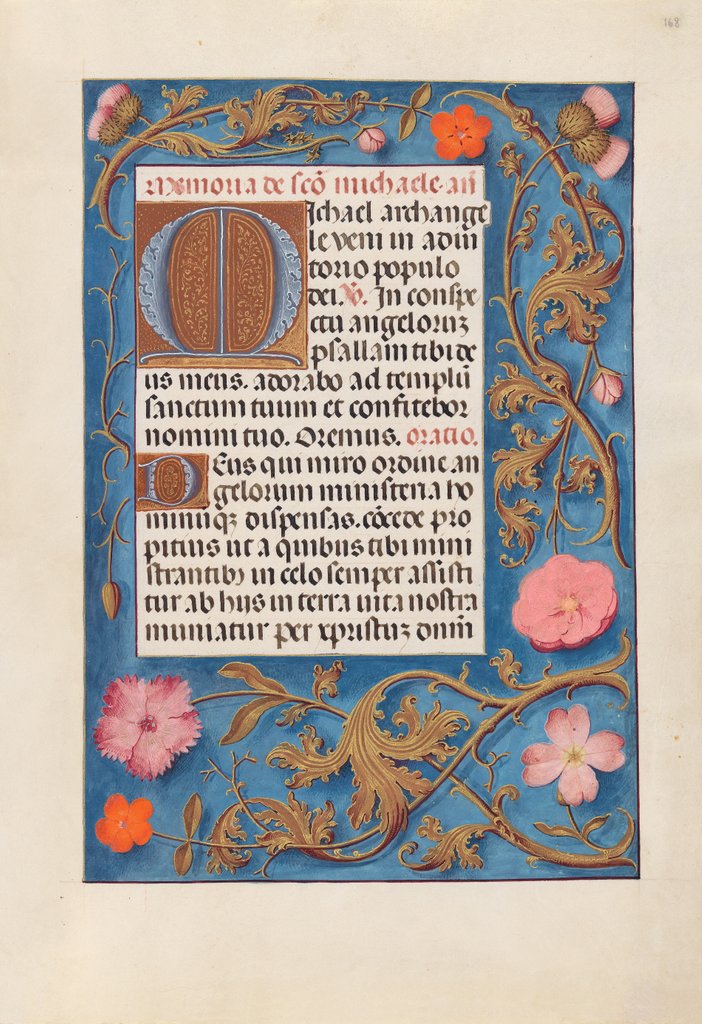 168
Memoria de scō michaele. añ
Michael archange
le veni in adiu
torio populo
dei. V. In conspe
ctu angeloruz
psallam tibi de
us meus. adorabo ad templū
sanctum tuum et confitebor
nomini tuo. Oremus. oratio.
Deus qui miro ordine an
gelorum ministeria ho
minuqz dispensas. cōcede pro
pitius ut a quibus tibi mini
strantibz in celo semper assisti
tur ab hijs in terra uita nostra
muniatur per xpristuz dominū